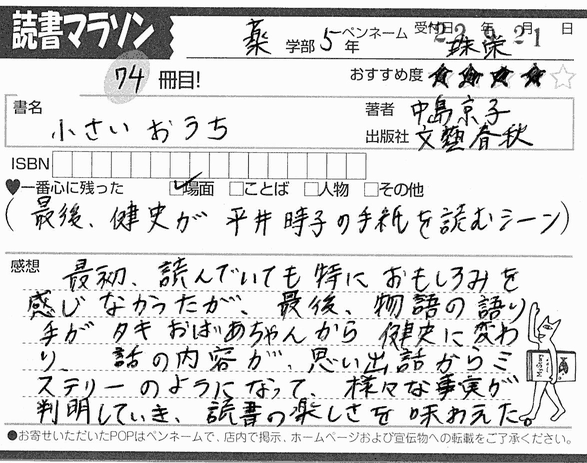 読書マラソン
薬 学部 5 年 ペンネーム 珠栄 受付日 23 年 9 月 21 日
74 冊目! おすすめ度 ★★★★☆
書名 小さいおうち
著者 中島京子
出版社 文藝春秋
ISBN
♥一番心に残った ☑場面 □ことば □人物 □その他
(最後、健史が平井時子の手紙を読むシーン)
感想 最初、読んでいても特におもしろみを
感じなかったが、最後、物語の語り
手がタキおばあちゃんから健史に変わ
り、話の内容が、思い出話からミ
ステリーのようになって、様々な事実が
判明していき、読書の楽しさを味わえた。
●お寄せいただいたPOPはペンネームで、店内で掲示、ホームページおよび宣伝物への転載をご了承ください。